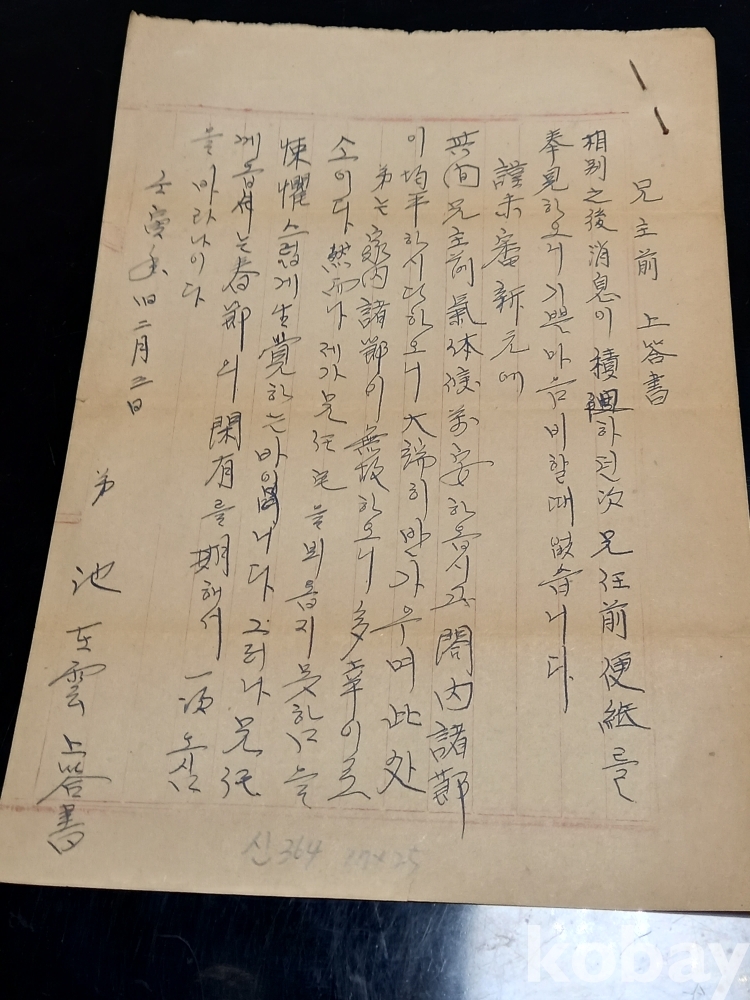 兄主前 上答書
相別之後消息이 積阻하던次 兄任前 便紙를
奉見하오니 기쁜마음 비할때 없습니다
謹未審 新元에
其間 兄主前 氣体候 萬安하옵시고 閤內諸節
이 均平하시다하오니 大端히 반가우며 此处
弟는 家內諸節이 無故하오니 多幸이로
소이다 然而나 제가 兄任宅을 뵈옵지 못함을
悚懼스럽게 生覺하는바입니다 그러나 兄任
께옵서는 春節의 閑有를 期해서 一次 오심
을 바라나이다
壬寅年 旧二月二日
弟 池在雲 上答書
신364 27×25
kobay